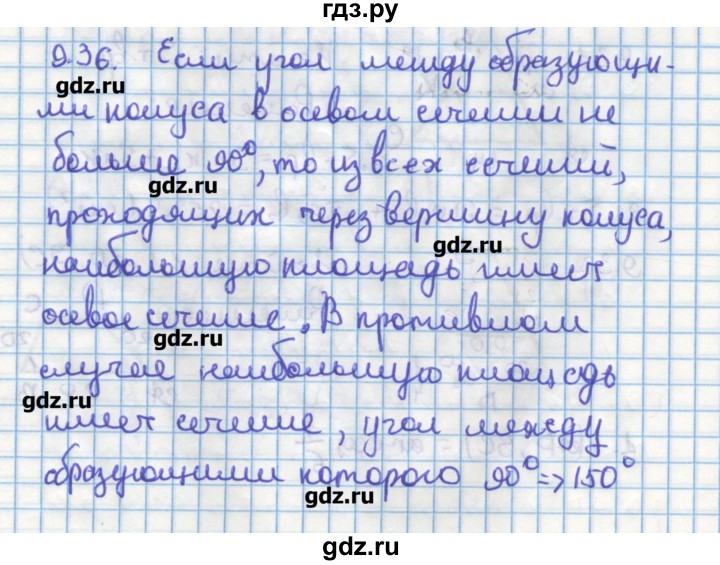 гдз.ру
9.36. Если угол между образующи-
gdz.ru
ми конуса в осевом сечении не
больше 90°, то из всех сечений,
gdz.ru
проходящих через вершину конуса,
gdz.ru
наибольшую площадь имеет
осевое сечение. В противном
gdz.ru
случае наибольшую площадь
gdz.ru
имеет сечение, угол между
образующими которого 90° => 150°
gdz.ru
gdz.ru